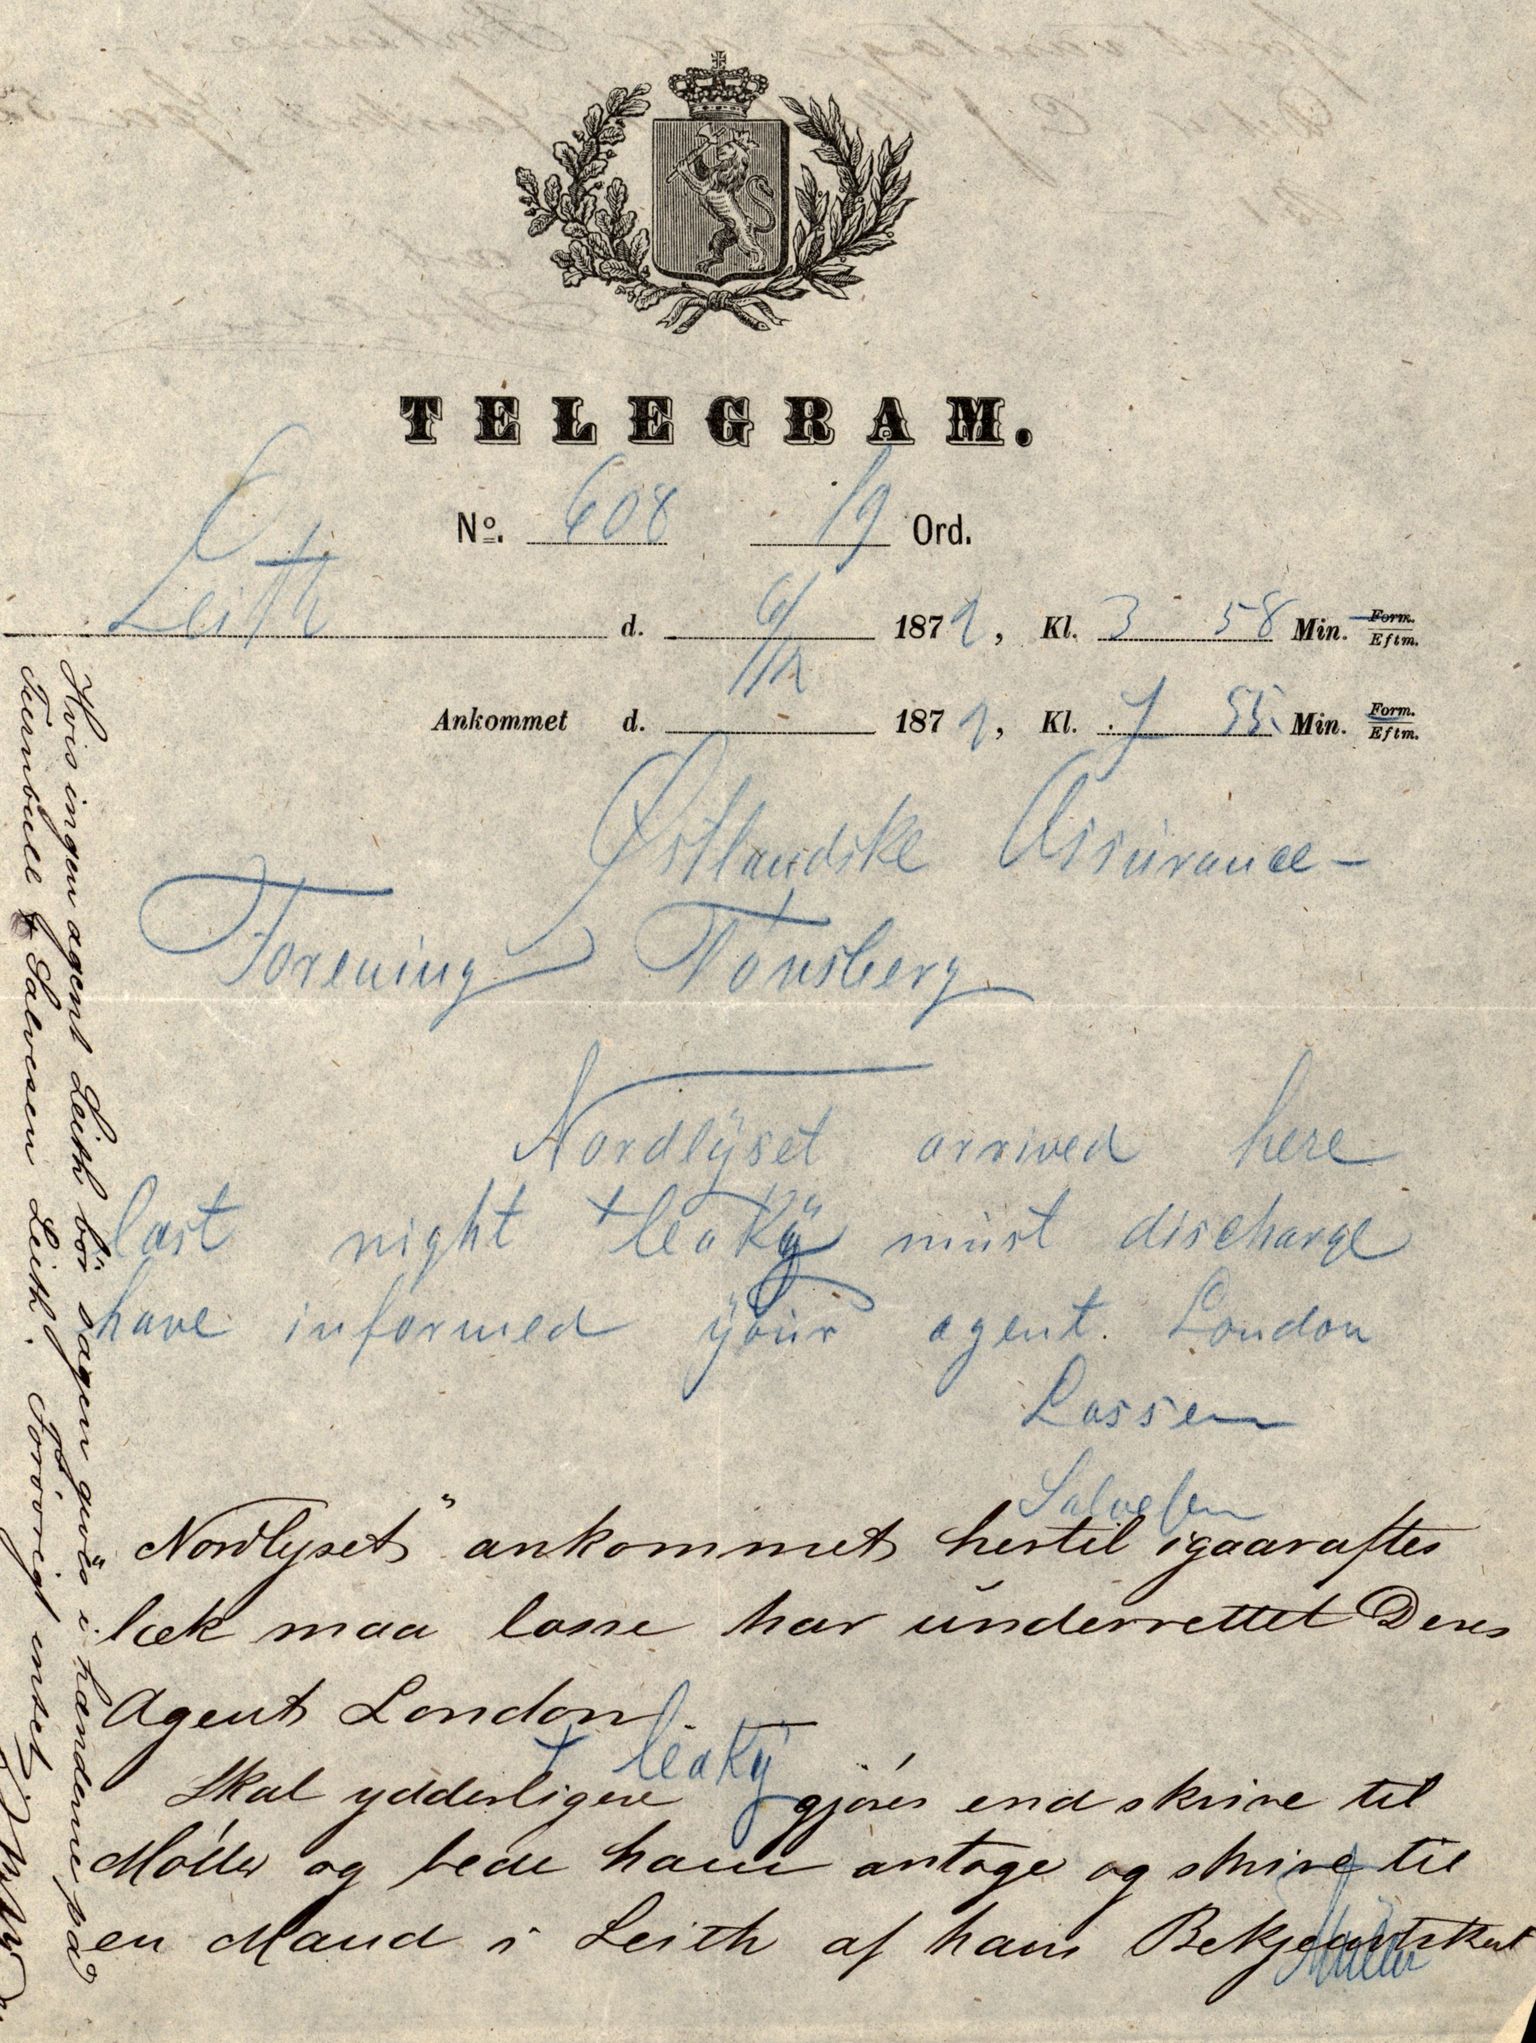 TELEGRAM.
No. 608 19 Ord.
Leith d. 6/12 1872, Kl. 3 58 Min. Form. Eftm.
Ankommet d. 1872, Kl. 7 55 Min. Form. Eftm.
Østlandske Assurance-
Forening Tønsberg
Nordlyset arrived here
last night + leaky must discharge
have informed your agent. London
Lassen
Salvesen
Nordlyset" ankommet hertil igaaraftes
læk maa losse har underrettet Deres
Agent London.
+ leaky
Skal ydderligere gjøres end skrive til
Møller og bede ham antage og skrive til
en Mand i Leith af hans Bekjentskab
Møller
Hvis ingen agent Leith bör sagen gives i hænderne på
Turnbull & Salvesen Leith. Forövrigt intet